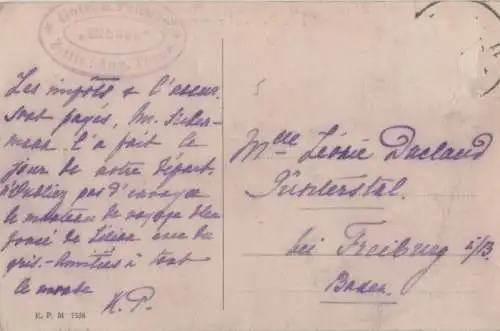 Les impôts & l'assur.
sont payés, M.
l'a fait le
jour de notre départ.
N'oubliez pas d'envoyer
le manteau de voyage bleu
foncé de Lilian ou du
gris. - Amitiés à tout
le monde
K. P.
K. P. M 1536
Mlle Léonie Duclaud
Günterstal.
bei Freiburg i/B.
Baden.